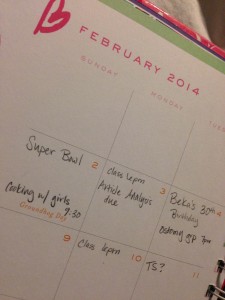 B
FEBRUARY 2014
SUNDAY
MONDAY
TUE
Super Bowl
2
Cooking w/ girls
Groundhog Day
7:30
class 6pm
Article Analysis
due
3
Beka's 30th
Birthday
7pm
4
9
class 6pm
10
TS?
11